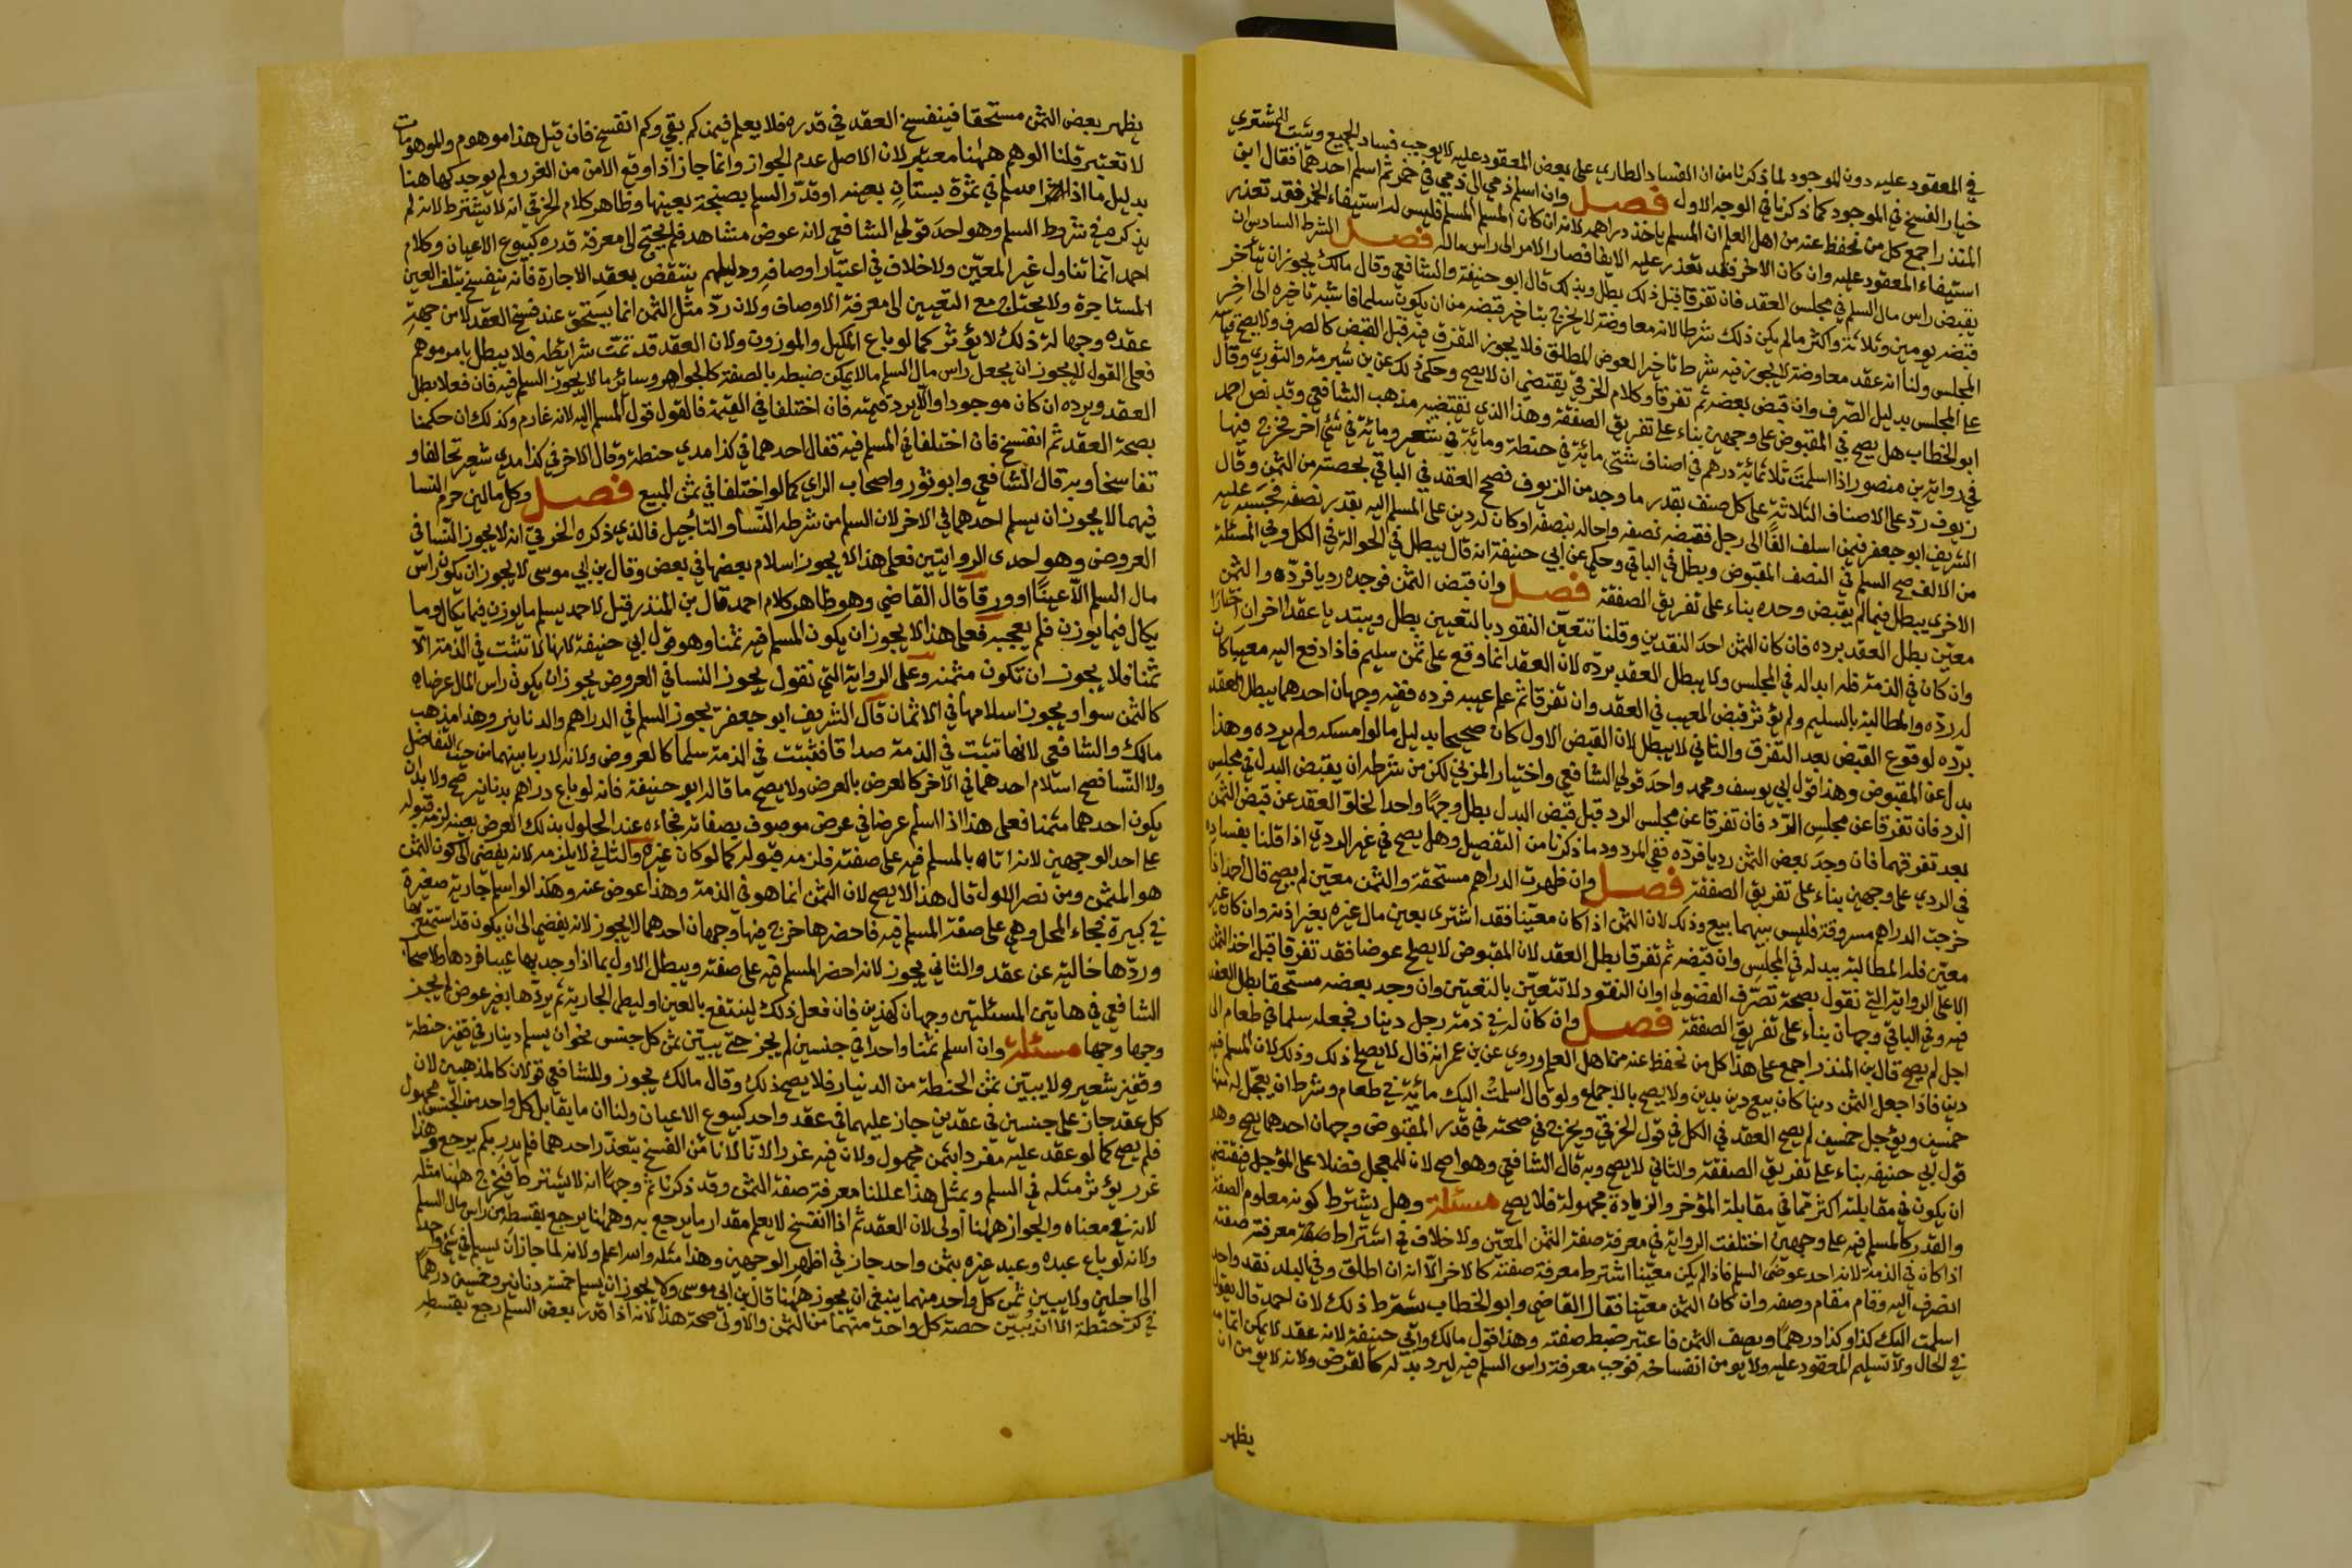 في المعقود عليه دون الموجود لما ذكرنا من ان الفساد الطاري على بعض المعقود عليه لا يوجب فساد الجميع ويثبت للمشتري
خيار الفسخ في الموجود كما ذكرنا في الوجه الاول فصل وان اسلم ذمي الى ذمي في خمر ثم اسلم احدهما فقال ابن
المنذر اجمع كل من نحفظ عنه من اهل العلم ان المسلم ياخذ دراهمه لانه ان كان المسلم المسلم فليس له استيفاء الخمر فقد تعذر
استيفاء المعقود عليه وان كان الاخر فقد تعذر عليه الايفا فصار الامر الى راس ماله فصل الشرط السادس ان
يقبض راس مال السلم في مجلس العقد فان تفرقا قبل ذلك بطل وبذلك قال ابو حنيفة والشافعي وقال مالك يجوز ان يتأخر
قبضه يومين وثلاثة واكثر ما لم يكن ذلك شرطا لانه معاوضة لا يخرج بتاخير قبضه من ان يكون سلما فاشبه تاخيره الى اخر
المجلس ولنا انه عقد معاوضة لا يجوز فيه شرط تاخير العوض المطلق فلا يجوز التفرق فيه قبل القبض كالصرف ولا يصح قياسه
على المجلس بدليل الصرف وان قبض بعضه ثم تفرقا وكلام الخرقي يقتضي ان لا يصح وحكي ذلك عن بن شبرمة والثوري وقال
ابو الخطاب هل يصح في المقبوض على وجهين بناء على تفريق الصفقة وهذا الذي يقتضيه مذهب الشافعي وقد نص احمد
في رواية بن منصور اذا اسلمت ثلاثمائة درهم في اصناف شتى مائة في حنطة ومائة في شعير ومائة في شيء آخر فخرج فيها
زيوف رد على الاصناف الثلاثة على كل صنف بقدر ما وجد من الزيوف فصح العقد في الباقي بحصته من الثمن وقال
الشريف ابو جعفر فيمن اسلف الفا الى رجل فقبضه نصفه واحاله بنصفه او كان له دين على المسلم اليه بقدر نصفه فحسبه عليه
من الالف صح السلم في النصف المقبوض وبطل في الباقي وحكي عن ابي حنيفة انه قال يبطل في الحوالة في الكل وفي المسئلة
الاخرى يبطل فيما لم يقبض وحده بناء على تفريق الصفقة فصل وان قبض الثمن فوجده رديا فرده والثمن
معين بطل العقد برده فان كان الثمن احد النقدين وقلنا تتعين النقود بالتعيين بطل ويبتديا عقدا اخر ان اختارا
وان كان في الذمة فله ابداله في المجلس ولا يبطل العقد برده لان العقد انما وقع على ثمن سليم فاذا دفع اليه معيبا كان
له رده والمطالبة بالسليم ولم يؤثر قبض المعيب في العقد وان تفرقا ثم علم عيبه فرده ففيه وجهان احدهما يبطل العقد
برده لوقوع القبض بعد التفرق والثاني لا يبطل لان القبض الاول كان صحيحا بدليل ما لو امسكه ولم يرده وهذا
بدل عن المقبوض وهذا قول ابي يوسف ومحمد واحد قولي الشافعي واختيار المزني لكن من شرطه ان يقبض البدل في مجلس
الرد فان تفرقا عن مجلس الرد فان تفرقا عن مجلس الرد قبل قبض البدل بطل وجها واحدا لخلو العقد عن قبض الثمن
بعد تفرقهما فان وجد بعض الثمن رديا فرده ففي المردود ما ذكرنا من التفصيل وهل يصح في غير الردي اذا قلنا بفساده
في الردي على وجهين بناء على تفريق الصفقة فصل وان ظهرت الدراهم مستحقة والثمن معين لم يصح قال احمد اذا
خرجت الدراهم مسروقة فليس بينهما بيع وذلك لان الثمن اذا كان معينا فقد اشترى بعين مال غيره بغير اذنه وان كان غير
معين فله المطالبة ببدله في المجلس وان قبضه ثم تفرقا بطل العقد لان المقبوض لا يصلح عوضا فقد تفرقا قبل اخذ الثمن
الا على الرواية التي تقول بصحة تصرف الفضولي او ان النقود لا تتعين بالتعيين وان وجد بعضه مستحقا بطل العقد
فيه وفي الباقي وجهان بناء على تفريق الصفقة فصل وان كان له في ذمة رجل دينار فجعله سلما في طعام الى
اجل لم يصح قال بن المنذر اجمع على هذا كل من نحفظ عنه من اهل العلم وروي عن بن عمر انه قال لا يصلح ذلك وذلك لان المسلم فيه
دين فاذا جعل الثمن دينا كان بيع دين بدين ولا يصح بالاجماع ولو قال اسلمت اليك مائة في طعام وشرط ان يعجل له منها
خمسين ويؤجل خمسين لم يصح العقد في الكل في قول الخرقي ويخرج في صحته في قدر المقبوض وجهان احدهما يصح وهو
قول ابي حنيفه بناء على تفريق الصفقة والثاني لا يصح وبه قال الشافعي وهو اصح لان للمعجل فضلا على المؤجل فيقتضي
ان يكون في مقابلته اكثر مما في مقابلة المؤخر والزيادة مجهولة فلا يصح مسئلة وهل يشترط كونه معلوم الصفة
والقدر كالمسلم فيه على وجهين اختلفت الرواية في معرفة صفة الثمن المعين ولا خلاف في اشتراط صفته معرفة صفته
اذا كان في الذمة لانه احد عوضي السلم فاذا لم يكن معينا اشترط معرفة صفته كالاخر الا انه ان اطلق وفي البلد نقد واحد
انصرف اليه وقام مقام وصفه وان كان الثمن معينا فقال القاضي وابو الخطاب يشترط ذلك لان احمد قال يقول
اسلمت اليك كذا وكذا درهما ويصف الثمن فاعتبر ضبط صفته وهذا قول مالك وابي حنيفة لانه عقد لا يمكن اتمامه
في الحال ولا تسليم المعقود عليه ولا يومن انفساخه فوجب معرفة راس السلم فيه ليرد بدله كالقرض ولانه لا يومن ان
يظهر
يظهر بعض الثمن مستحقا فينفسخ العقد في قدره فلا يعلم فيمن كم بقي وكم انفسخ فان قيل هذا موهوم والموهومات
لا تعتبر قلنا الوهم ههنا معتبر لان الاصل عدم الجواز وانما جاز اذا وقع الامن من الغرر ولم يوجد كما هاهنا
بدليل ما اذا اسلم في ثمرة بستان بعينه او قدر السلم بصنجة بعينها وظاهر كلام الخرقي انه لا يشترط لانه لم
يذكره في شروط السلم وهو احد قولي الشافعي لانه عوض مشاهد فلم يحتج الى معرفة قدره كبيوع الاعيان وكلام
احمد انما تناول غير المعين ولا خلاف في اعتبار اوصافه ودليلهم ينتقض بعقد الاجارة فانه ينفسخ بتلف العين
المستاجرة ولا يحتاج مع التعيين الى معرفة الاوصاف ولان رد مثل الثمن انما يستحق عند فسخ العقد لا من جهة
عقده وجهالة ذلك لا يؤثر كما لو باع المكيل والموزون ولان العقد قد تمت شرائطه فلا يبطل بامر موهم
فعلى القول لا يجوز ان يجعل راس مال السلم ما لا يمكن ضبطه بالصفة كالجواهر وسائر ما لا يجوز السلم فيه فان فعلا بطل
العقد ويرده ان كان موجودا والا يرد قيمته فان اختلفا في القيمة فالقول قول المسلم اليه لانه غارم وكذلك ان حكمنا
بصحة العقد ثم انفسخ فان اختلفا في المسلم فيه فقال احدهما في كذا مدي حنطة وقال الاخر في كذا مدي شعير تحالفا و
تفاسخا وبه قال الشافعي وابو ثور واصحاب الراي كما لو اختلفا في ثمن المبيع فصل وكل مالين حرم النسا
فيهما لا يجوز ان يسلم احدهما في الاخر لان السلم من شرطه النسأ والتأجيل فالذي ذكره الخرقي انه لا يجوز النسا في
العروض وهو احدى الروايتين فعلى هذا لا يجوز اسلام بعضها في بعض وقال بن ابي موسى لا يجوز ان يكون راس
مال السلم الا عينا او ورقا قال القاضي وهو ظاهر كلام احمد قال بن المنذر قيل لاحمد يسلم ما يوزن فيما يكال وما
يكال فيما يوزن فلم يعجبه فعلى هذا لا يجوز ان يكون المسلم فيه ثمنا وهو قول ابي حنيفة لانها لا تثبت في الذمة الا
ثمنا فلا يجوز ان تكون مثمنه وعلى الرواية التي تقول يجوز النسا في العروض يجوز ان يكون راس المال عرضا
كالثمن سوا ويجوز اسلامها في الاثمان قال الشريف ابو جعفر يجوز السلم في الدراهم والدنانير وهذا مذهب
مالك والشافعي لانها تثبت في الذمة صداقا فتثبت في الذمة سلما كالعروض ولانه لا ربا بينهما من حيث التفاضل
ولا النسا فصح اسلام احدهما في الاخر كالعرض بالعرض ولا يصح ما قاله ابو حنيفة فانه لو باع دراهم بدنانير صح ولا بد ان
يكون احدهما مثمنا فعلى هذا اذا اسلم عرضا في عرض موصوف بصفاته فجاءه عند الحلول بذلك العرض بعينه لزمه قبوله
على احد الوجهين لانه اتاه بالمسلم فيه على صفته فلزمه قبوله كما لو كان غيره والثاني لا يلزمه لانه يفضي الى كون الثمن
هو المثمن ومن نصر الاول قال هذا لا يصح لان الثمن انما هو في الذمة وهذا عوض عنه وهكذا لو اسلم جارية صغيرة
في كبيرة فجاء المحل وهي على صفة المسلم فيه فاحضرها خرج فيها وجهان احدهما لا يجوز لانه يفضي الى ان يكون قد استمتع بها
وردها خالية عن عقد والثاني يجوز لانه احضر المسلم فيه على صفته ويبطل الاول بما اذا وجد بها عيبا فردها ولاصحاب
الشافعي في هاتين المسئلتين وجهان كهذين فان فعل ذلك لينتفع بالعين او ليطا الجارية ثم يردها بغير عوض لم يجز
وجها وجها مسئلة وان اسلم ثمنا واحدا في جنسين لم يجز حتى يبين ثمن كل جنس نحو ان يسلم دينار في قفيز حنطة
وقفيز شعير ولا يبين ثمن الحنطة من الدينار فلا يصح ذلك وقال مالك يجوز وللشافعي قولان كالمذهبين لان
كل عقد جاز على جنسين في عقدين جاز عليهما في عقد واحد كبيوع الاعيان ولنا ان ما يقابل كل واحد من الجنسين مجهول
فلم يصح كما لو عقد عليه مفردا بثمن مجهول ولان فيه غررا لانا لا نامن الفسخ بتعذر احدهما فلم يدر بكم يرجع وهذا
غرر يؤثر مثله في السلم وبمثل هذا عللنا معرفة صفة الثمن وقد ذكرنا ثم وجها انه لا يشترط فيخرج ههنا مثله
لانه في معناه والجواز ههنا أولى لان العقد ثم اذا انفسخ لا يعلم مقدار ما يرجع به وههنا يرجع بقسطه من راس مال السلم
ولانه لو باع عبده وعبد غيره بثمن واحد جاز في اظهر الوجهين وهذا مثله والله اعلم ولانه لما جاز ان يسلم في شيء واحد
الى اجلين ولا يبين ثمن كل واحد منهما ينبغي ان يجوز ههنا قال بن ابي موسى ولا يجوز ان يسلم خمسة دنانير وخمسين درهما
في كر حنطة الا ان يبين حصة كل واحدة منهما من الثمن والاولى صحة هذا لانه اذا قدر بعض السلم رجع بقسطه